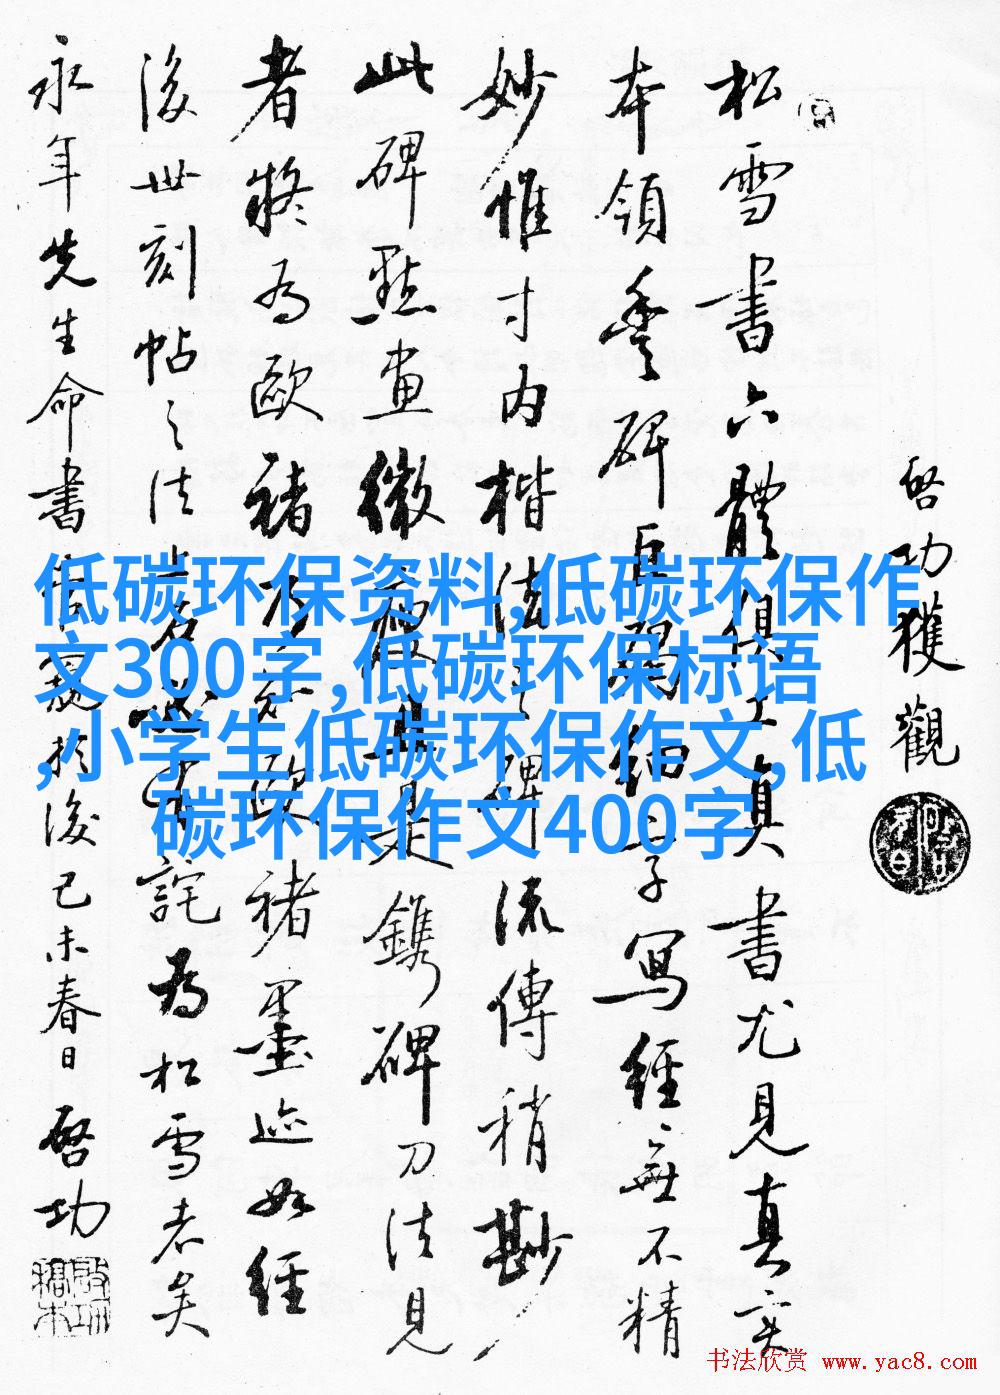 低碳环保资料,低碳环保作
文300字,低碳环保标语
,小学生低碳环保作文,低
碳环保作文400字
啓功獲觀
松雪書六體俱工真書尤見真實
本領豐碑巨碣細字寫經無不精
妙惟寸内楷法碑流傳稍尠
此碑點畫是鐫碑刀法見
者將為歐褚不知歐褚墨迹如經
後世刻帖之法上石必詫為松雪者矣
永年先生命書於後己未春日啓功
书法欣赏 www.yac8.com